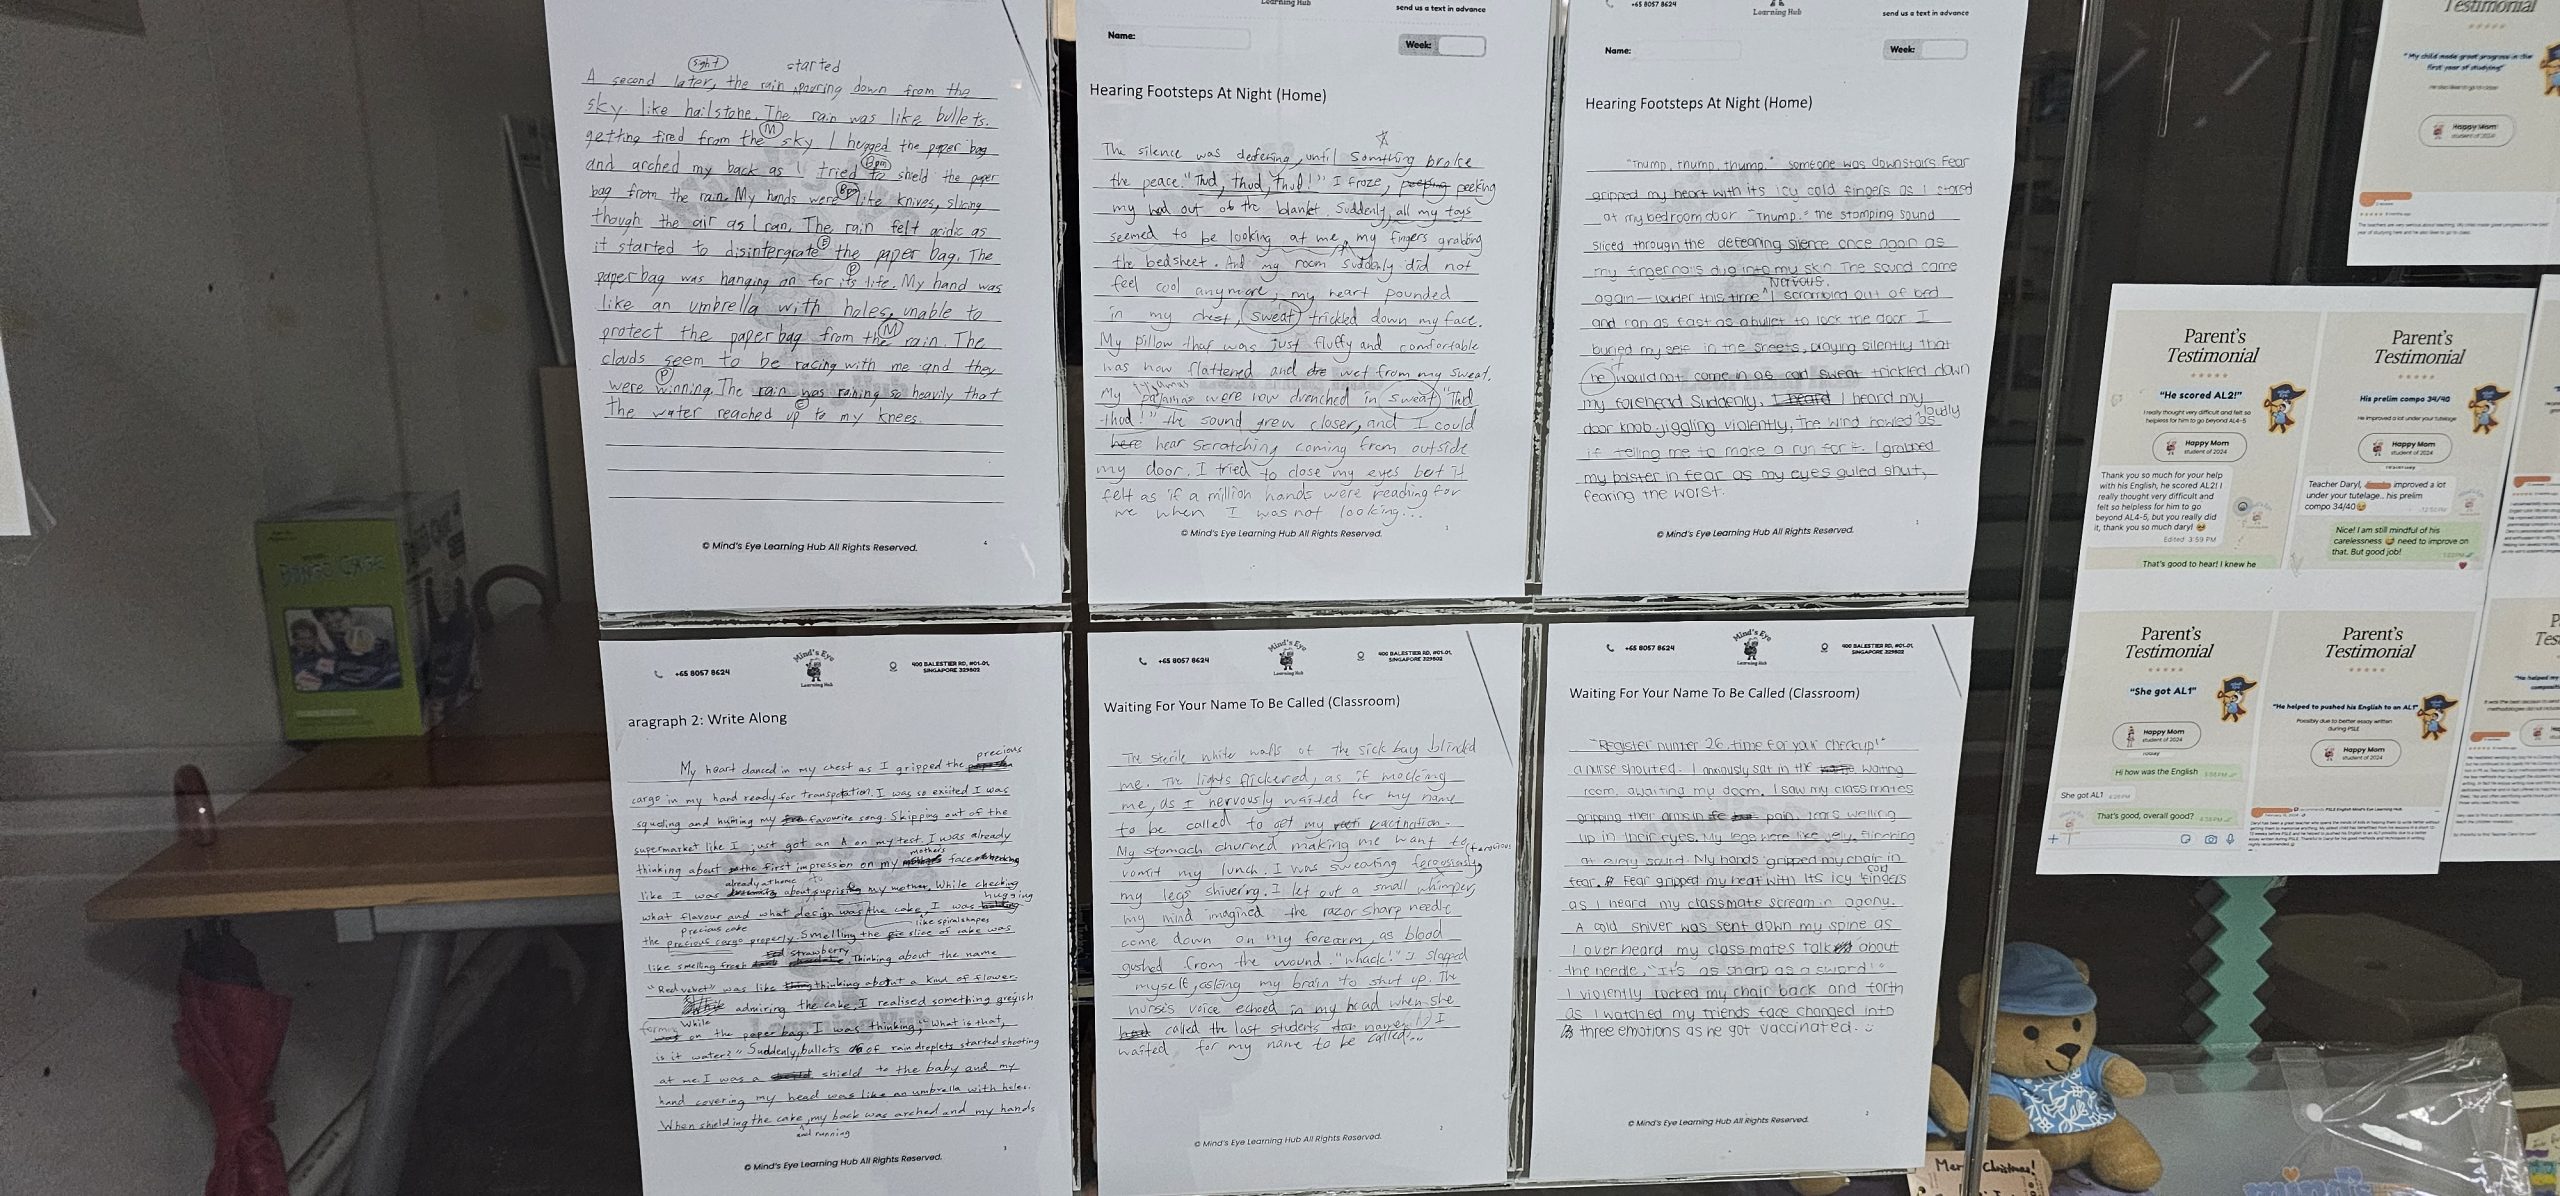 Learning Hub
send us a text in advance
+65 8057 8624
Learning Hub
send us a text in advance
sight
started
A second later, the rain pouring down from the
sky like hailstone. The rain was like bullets.
getting fired from the sky. I hugged the paper bag
M
and arched my back as I tried to shield the paper
Bpm
bag from the rain. My hands were like knives, slicing
Bpm
though the air as I ran. The rain felt acidic as
it started to disintergrate the paper bag. The
P
paper bag was hanging on for its life. My hand was
P
like an umbrella with holes, unable to
protect the paper bag from the rain. The
M
clouds seem to be racing with me and they
were winning. The rain was raining so heavily that
P
the water reached up to my knees.
© Mind's Eye Learning Hub All Rights Reserved.
4
Name:
Week:
Hearing Footsteps At Night (Home)
The silence was defening, until Somthing broke
the peace. "Thud, thud, thud!" I froze, peeking
my had out of the blanket. Suddenly, all my toys
seemed to be looking at me, my fingers grabbing
the bedsheet. And my room suddenly did not
feel cool anymore, my heart pounded
in my chest, sweat trickled down my face.
My pillow that was just fluffy and comfortable
was now flattened and wet from my sweat.
My pajamas were now drenched in sweat. "Thud
thud!" the sound grew closer, and I could
here hear scratching coming from outside
my door. I tried to close my eyes but it
felt as if a million hands were reaching for
me when I was not looking...
© Mind's Eye Learning Hub All Rights Reserved.
Name:
Week:
Hearing Footsteps At Night (Home)
"Thump, thump, thump." someone was downstairs. Fear
gripped my heart with its icy cold fingers as I stared
at my bedroom door. "Thump." the stomping sound
sliced through the defeaning silence once again as
my fingernails dug into my skin. The sound came
again—louder this time. I scrambled out of bed
and ran as fast as a bullet to lock the door. I
buried my self in the sheets, praying silently that
he would not come in as cold sweat trickled down
my forehead. Suddenly, I heard I heard my
loudly
door knob jiggling violently. The wind howled as
if telling me to make a run for it. I grabbed
my bolster in fear as my eyes gulled shut,
fearing the worst.
© Mind's Eye Learning Hub All Rights Reserved.
+65 8057 8624
Mind's Eye
Learning Hub
400 BALESTIER RD, #01-01,
SINGAPORE 329802
aragraph 2: Write Along
precious
My heart danced in my chest as I gripped the
cargo in my hand ready for transpotation. I was so excited I was
squeling and huming my favourite song. Skipping out of the
supermarket like I just got an A on my test. I was already
mothers
thinking about the first impression on my face
already at home
like I was about suprising my mother. While checking
hugging
what flavour and what design was the cake, I was
Precious cake
like spiral shapes
the precious cargo properly. Smelling the slice of cake was
strawberry
like smelling fresh . Thinking about the name
"Red velvet" was like thinking about a kind of flower.
While
admiring the cake, I realised something greyish
forming
on the paper bag. I was thinking, "What is that,
is it water?" Suddenly, bullets of rain droplets started shooting
at me. I was a shield to the baby and my
hand covering my head was like an umbrella with holes.
When shielding the cake, my back was arched and my hands
and running
© Mind's Eye Learning Hub All Rights Reserved.
3
+65 8057 8624
Mind's Eye
Learning Hub
400 BALESTIER RD, #01-01,
SINGAPORE 329802
Waiting For Your Name To Be Called (Classroom)
The sterile white walls of the sick bay blinded
me. The lights flickered, as if mocking
me, as I nervously waited for my name
to be called to get my vactnation.
My stomach churned making me want to
vomit my lunch. I was sweating ferousiously,
my legs shivering. I let out a small whimper,
my mind imagined the razor sharp needle
come down on my forearm, as blood
gushed from the wound. "whack!" I slapped
myself, asking my brain to shut up. The
nurse's voice echoed in my head when she
called the last students name. I
waited for my name to be called...
© Mind's Eye Learning Hub All Rights Reserved.
2
+65 8057 8624
Mind's Eye
Learning Hub
400 BALESTIER RD, #01-01,
SINGAPORE 329802
Waiting For Your Name To Be Called (Classroom)
"Register number 26, time for your checkup!"
a nurse shouted. I anxiously sat in the waiting
room, awaiting my doom. I saw my classmates
gripping their arms in pain, tears welling
up in their eyes. My legs were like jely, flinching
at every sound. My hands gripped my chair in
cold
fear. Fear gripped my heat with its icy fingers
as I heard my classmate scream in agony.
A cold shiver was sent down my spine as
I over heard my classmates talk about
the needle, "It's as sharp as a sword!"
I violently rocked my chair back and forth
as I watched my friends face changed into
three emotions as he got vaccinated.
© Mind's Eye Learning Hub All Rights Reserved.
2
Testimonial
"My child made great progress in the
first year of studying"
Happy Mom
student of 2024
Parent's
Testimonial
"He scored AL2!"
I really thought very difficult and felt so
helpless for him to go beyond AL4-5
Happy Mom
student of 2024
Thank you so much for your help
with his English, he scored AL2! I
really thought very difficult and
felt so helpless for him to go
beyond AL4-5, but you really did
it, thank you so much daryl
Edited 3:59 PM
That's good to hear! I knew he
Parent's
Testimonial
His prelim compo 34/40
He improved a lot under your tutelage
Happy Mom
student of 2024
Teacher Daryl, improved a lot
under your tutelage.. his prelim
compo 34/40
Nice! I am still mindful of his
carelessness need to improve on
that. But good job!
Parent's
Testimonial
"She got AL1"
Happy Mom
student of 2024
Today
Hi how was the English
She got AL1
That's good, overall good?
Parent's
Testimonial
"He helped to pushed his English to an AL1"
Possibly due to better essay written
during PSLE
Happy Mom
student of 2024
Merry Christmas!